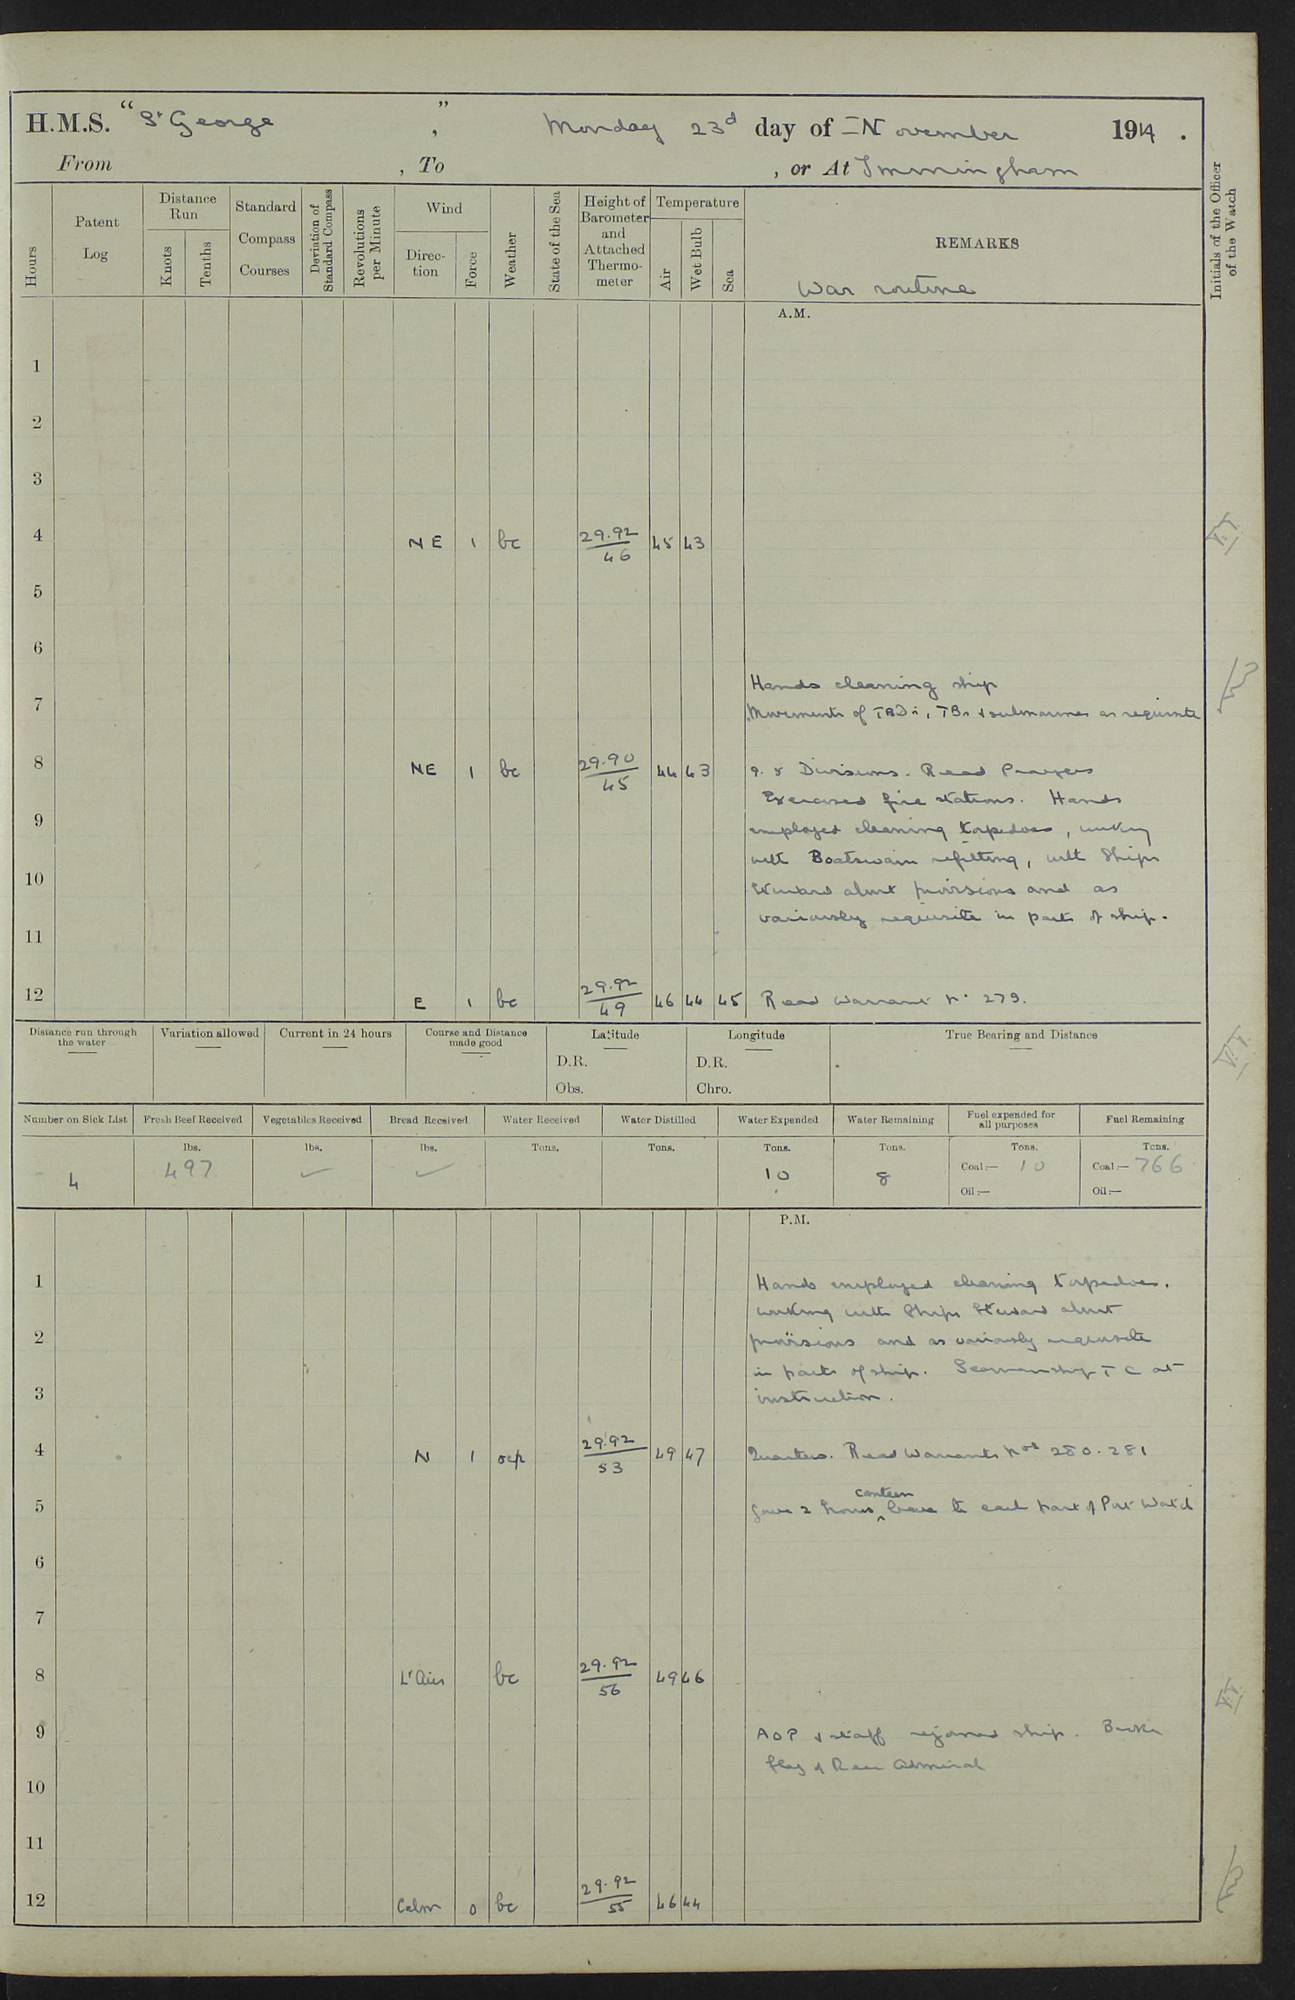 H.M.S. "St George", Monday 23d day of November 1914.
From , To , or At Immingham
Hours
Patent Log
Distance Run
Knots
Tenths
Standard Compass Courses
Deviation of Standard Compass
Revolutions per Minute
Wind
Direction
Force
Weather
State of the Sea
Height of Barometer and Attached Thermometer
Temperature
Air
Wet Bulb
Sea
REMARKS
War routine
Initials of the Officer of the Watch
A.M.
1
2
3
4 NE 1 bc 29.92/46 45 43
5
6
Hands cleaning ship
7 Movements of TBDs, TBs & submarines as requisite
8 NE 1 bc 29.90/45 44 43 9.5 Divisions. Read Prayers
Exercised fire stations. Hands
9 employed cleaning torpedoes, working
with Boatswain refitting, with Ships
10 Steward about provisions and as
variously requisite in parts of ship.
11
12 E 1 bc 29.92/49 46 44 45 Read Warrant No 279.
Distance run through the water
Variation allowed
Current in 24 hours
Course and Distance made good
Latitude
D.R.
Obs.
Longitude
D.R.
Chro.
True Bearing and Distance
Number on Sick List
Fresh Beef Received
Vegetables Received
Bread Received
Water Received
Water Distilled
Water Expended
Water Remaining
Fuel expended for all purposes
Fuel Remaining
lbs. lbs. lbs. Tons. Tons. Tons. Tons. Tons. Tons.
4 497 ✓ ✓ 10 8 Coal:— 10 Coal:— 766
Oil:— Oil:—
P.M.
1 Hands employed cleaning torpedoes.
working with Ships Steward about
2 provisions and as variously requisite
in parts of ship. Seamanship T C at
3 instruction.
4 N 1 ocp 29.92/53 49 47 Quarters. Read Warrants Nos 280. 281
5 Gave 2 hours canteen leave to each part of Port Watch
6
7
8 Lt Airs bc 29.92/56 49 46
9 AOP & staff rejoined ship. Broke
flag of Rear Admiral
10
11
12 Calm 0 bc 29.92/55 46 44